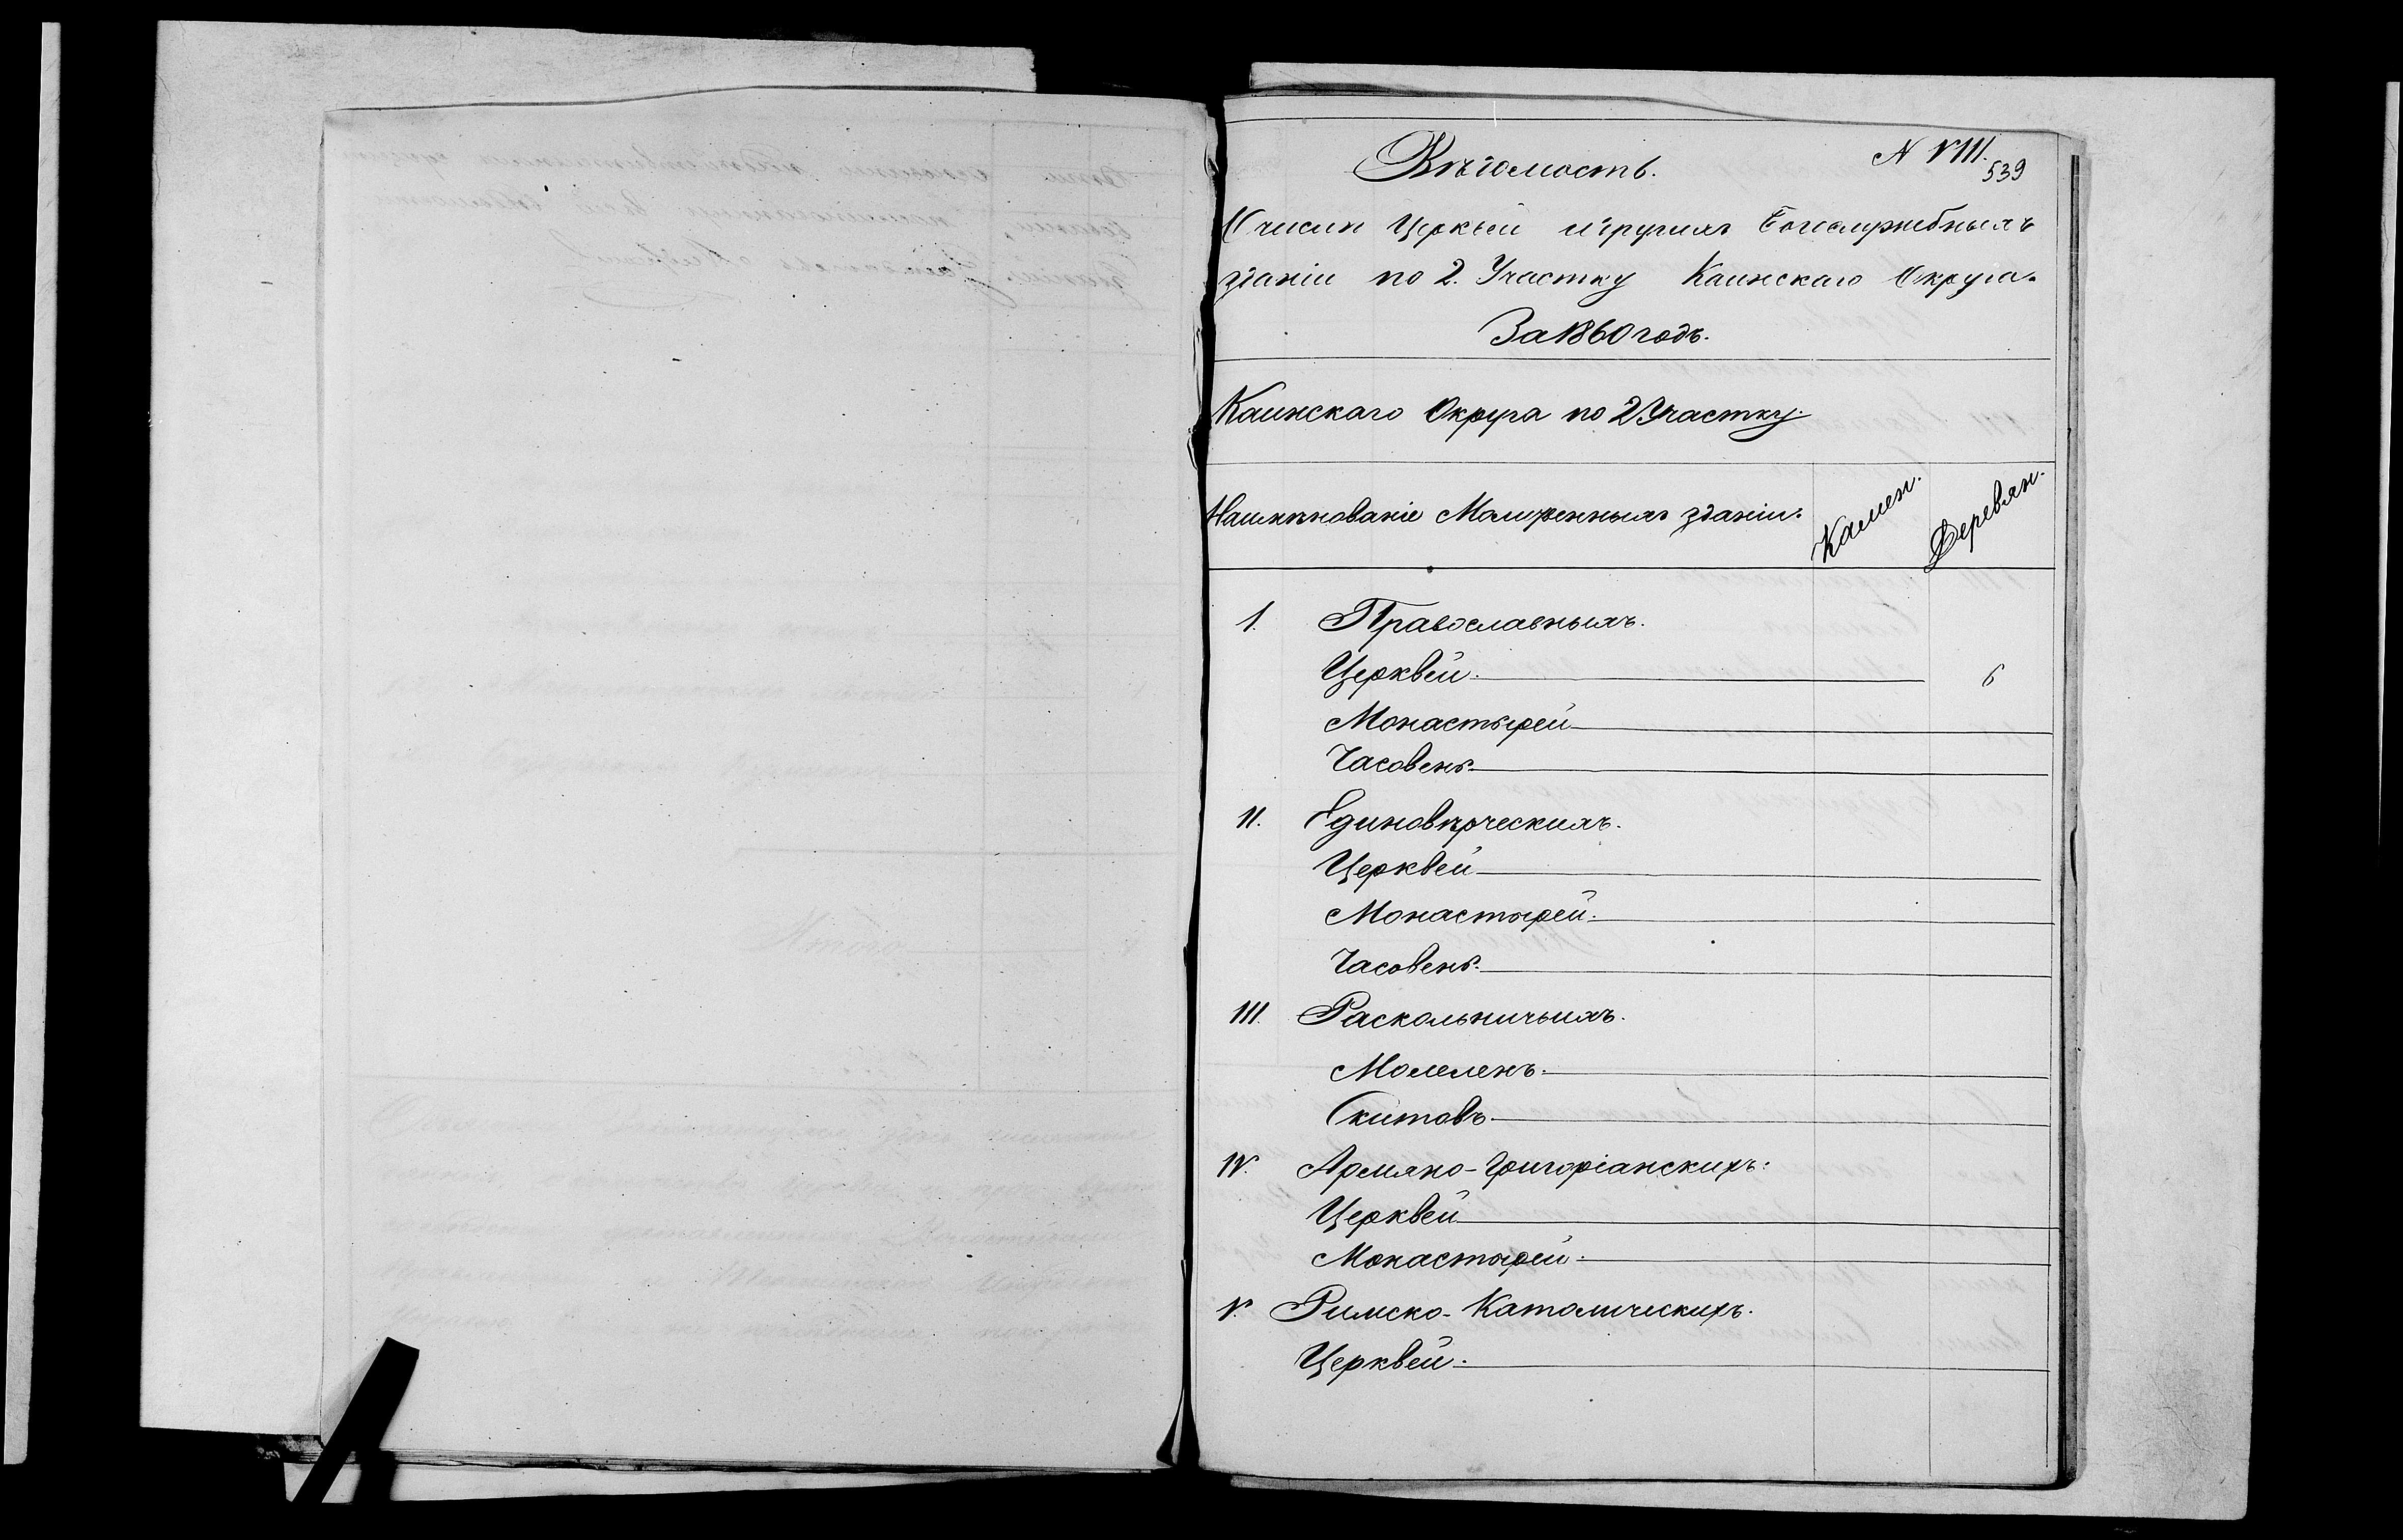 Вѣдомость. N VIII.
539
О числѣ Церквей и другихъ Богослужебныхъ
зданiи по 2. Участку Каинскаго Округа.
За 1860 годъ.
Каинскаго Округа по 2 Участку.
Наимѣнованiе Молитвенныхъ зданiи. Камен. Деревян.
I. Православныхъ.
Церквей. 6
Монастырей
Часовень.
II. Единовѣрческихъ.
Церквей
Монастырей.
Часовень.
III. Раскольничьихъ.
Молелень.
Скитовъ
IV. Армяно-Григорiанскихъ:
Церквей
Монастырей.
V. Римско-Католическихъ.
Церквей.